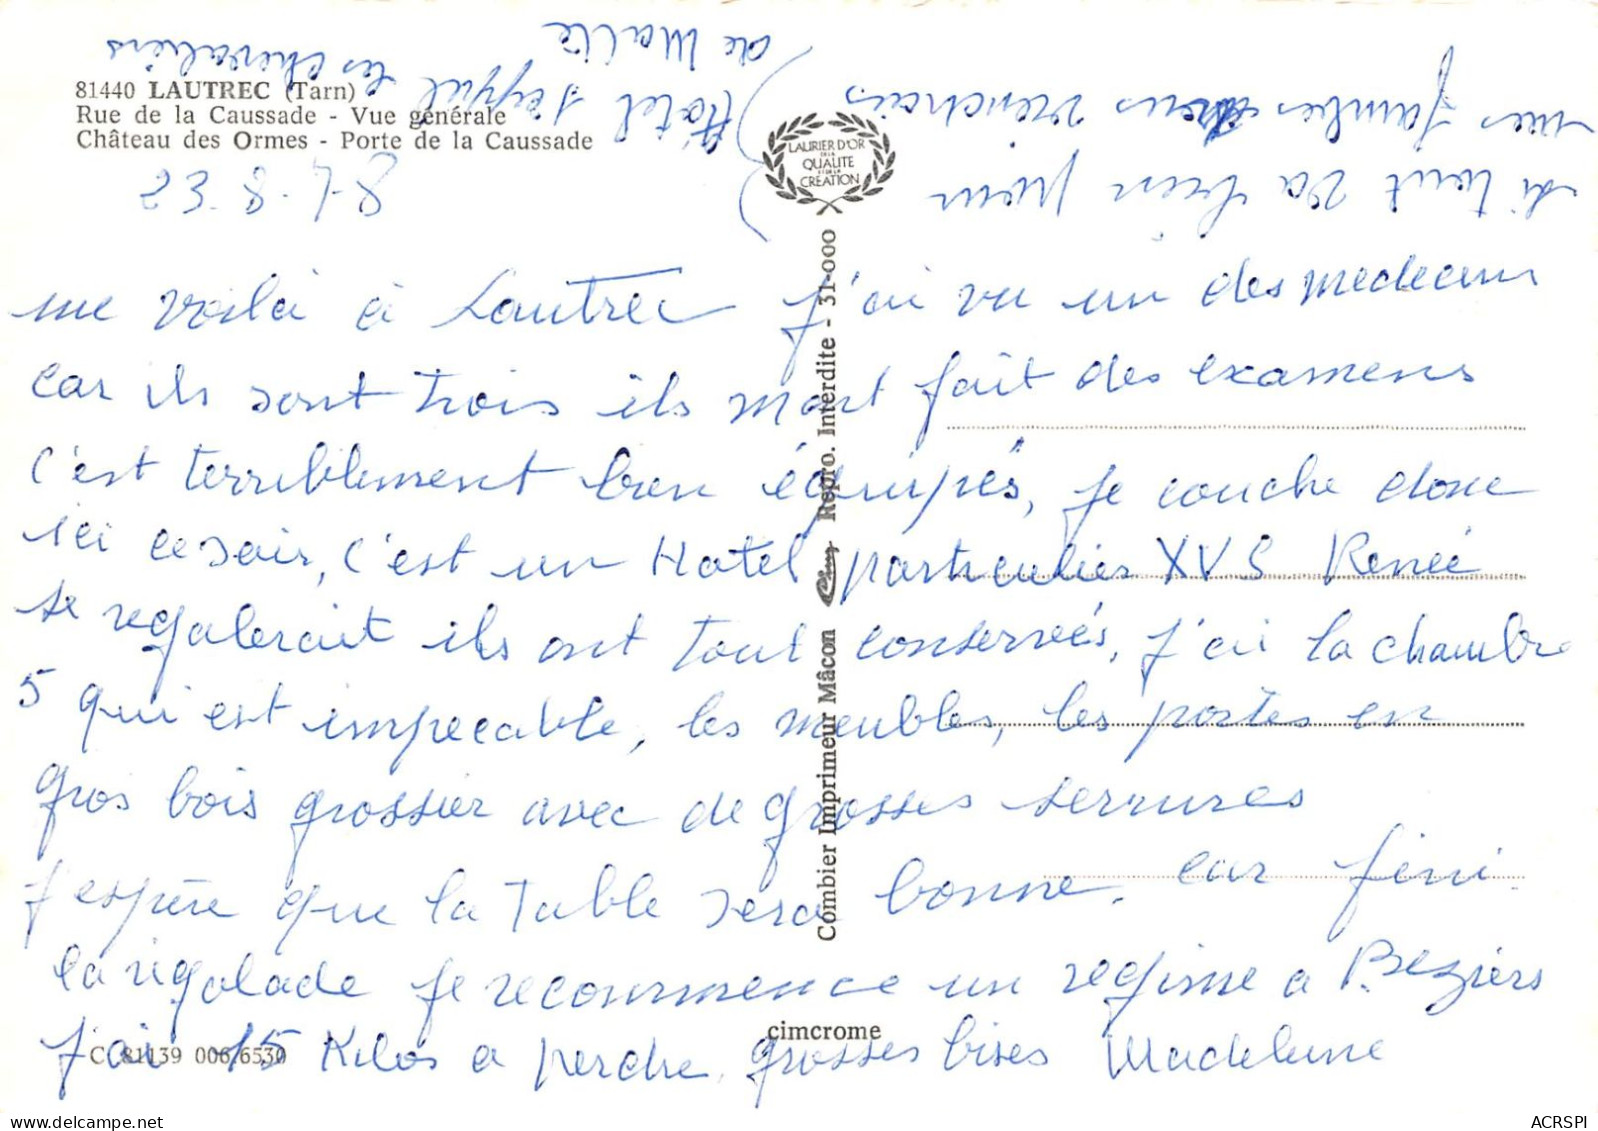 81440 LAUTREC (Tarn)
Rue de la Caussade - Vue générale
Château des Ormes - Porte de la Caussade
23.8.78
me voilà à Lautrec j'ai vu un des medecins
car ils sont trois ils mont fait des examens
c'est terriblement bien équipés, je couche donc
ici ce soir, c'est un Hotel particulier XVS Renée
se regalerait ils ont tout conservés, j'ai la chambre
5 qui est impecable, les meubles, les portes en
gros bois grossier avec de grosses serrures
j'espère que la table sera bonne, car fini
la rigolade je recommence un regime a Beziers
j'ai 15 Kilos a perdre, grosses bises Madeleine
si tout va bien pour
mes jambes nous viendrons
(Hotel s'appel les chevaliers
de Malte)
LAURIER D'OR
DE LA
QUALITE
ET DE LA
CREATION
Combier Imprimeur Mâcon Cim Repro. Interdite - 31-000
cimcrome
C 81139 006 6530
www.delcampe.net
ACRSPI